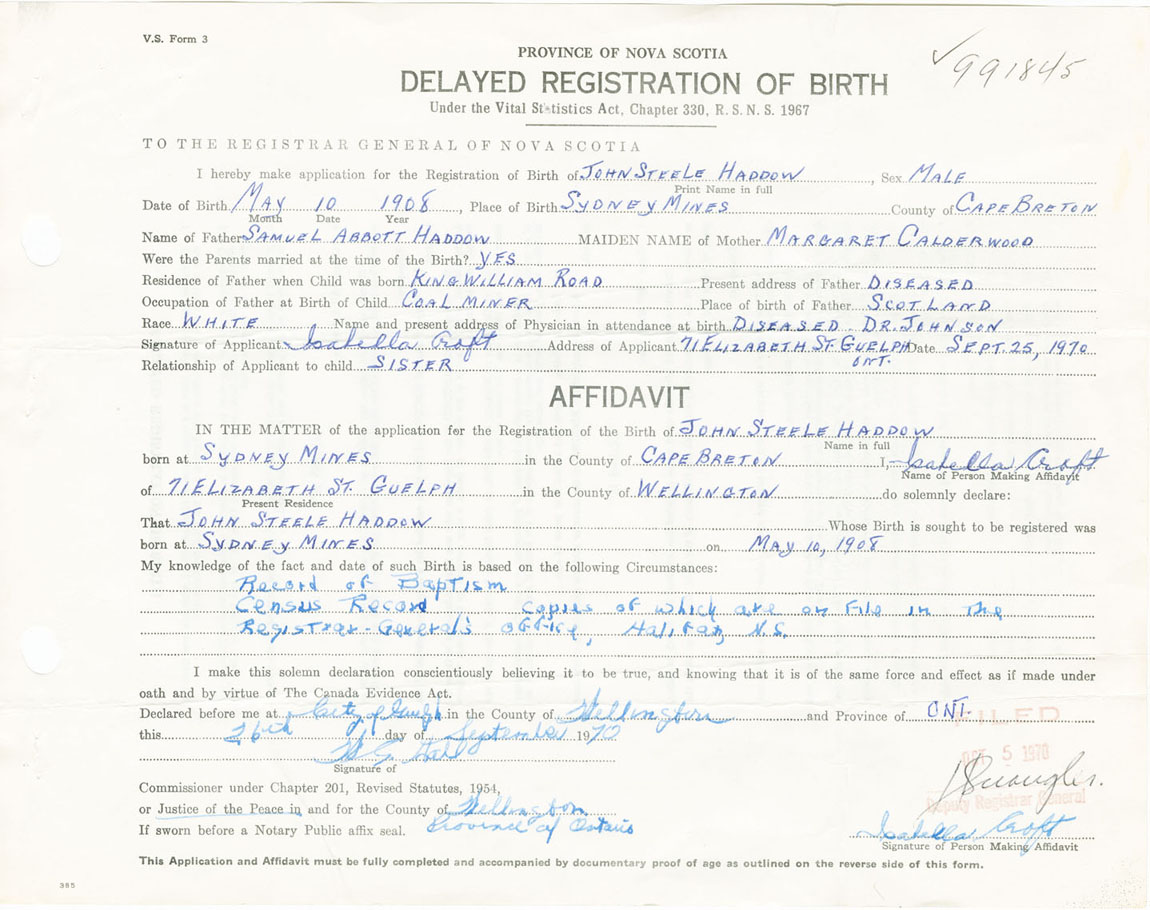 V.S. Form 3
PROVINCE OF NOVA SCOTIA
✓991845
DELAYED REGISTRATION OF BIRTH
Under the Vital Statistics Act, Chapter 330, R.S.N.S. 1967
TO THE REGISTRAR GENERAL OF NOVA SCOTIA
I hereby make application for the Registration of Birth of JOHN STEELE HADDOW, Sex MALE
Print Name in full
Date of Birth MAY 10 1908, Place of Birth SYDNEY MINES County of CAPE BRETON
Month Date Year
Name of Father SAMUEL ABBOTT HADDOW MAIDEN NAME of Mother MARGARET CALDERWOOD
Were the Parents married at the time of the Birth? YES
Residence of Father when Child was born KING WILLIAM ROAD Present address of Father DISEASED
Occupation of Father at Birth of Child COAL MINER Place of birth of Father SCOTLAND
Race WHITE Name and present address of Physician in attendance at birth DISEASED DR. JOHNSON
Signature of Applicant Isabella Croft Address of Applicant 71 ELIZABETH ST. GUELPH Date SEPT. 25, 1970
ONT.
Relationship of Applicant to child SISTER
AFFIDAVIT
IN THE MATTER of the application for the Registration of the Birth of JOHN STEELE HADDOW
Name in full
born at SYDNEY MINES in the County of CAPE BRETON I, Isabella Croft
Name of Person Making Affidavit
of 71 ELIZABETH ST. GUELPH in the County of WELLINGTON do solemnly declare:
Present Residence
That JOHN STEELE HADDOW Whose Birth is sought to be registered was
born at SYDNEY MINES on MAY 10, 1908
My knowledge of the fact and date of such Birth is based on the following Circumstances:
Record of Baptism
Census Record copies of which are on file in the
Registrar-General's office, Halifax, N.S.
I make this solemn declaration conscientiously believing it to be true, and knowing that it is of the same force and effect as if made under
oath and by virtue of The Canada Evidence Act.
Declared before me at City of Guelph in the County of Wellington and Province of ONT.
FILED
this 26th day of September 1970
OCT 5 1970
Signature of
Commissioner under Chapter 201, Revised Statutes, 1954,
Deputy Registrar General
or Justice of the Peace in and for the County of Wellington
If sworn before a Notary Public affix seal. Province of Ontario
Isabella Croft
Signature of Person Making Affidavit
This Application and Affidavit must be fully completed and accompanied by documentary proof of age as outlined on the reverse side of this form.
385